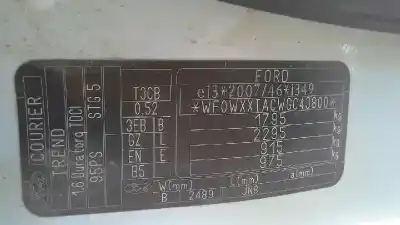 FORD
e13*2007/46*1349
*WF0WXXTACWGC43800*
1795 kg
2295 kg
915 kg
975 kg
T3CB
0.52
3EB B
GZ L
EN E
B5
W(mm) L(mm) a(mm)
B 2489 JN8
COURIER
TREND
1.6 Duratorq TDCI
95PS STG 5